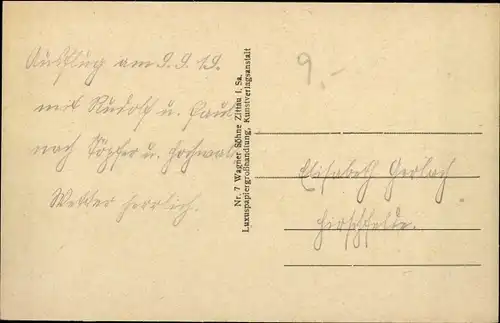 Ausflug am 9.9.19.
mit Rudolf u. Paul
nach Töpfer u. Hochwald
Wetter herrlich.
Nr. 7 Wagner Söhne Zittau i. Sa.
Luxuspapiergroßhandlung, Kunstverlagsanstalt
9,-
Elisabeth Gerlach
Hirschfelde.